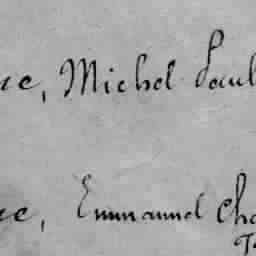 ce, Michel Paul
ce, Emmanuel Cha